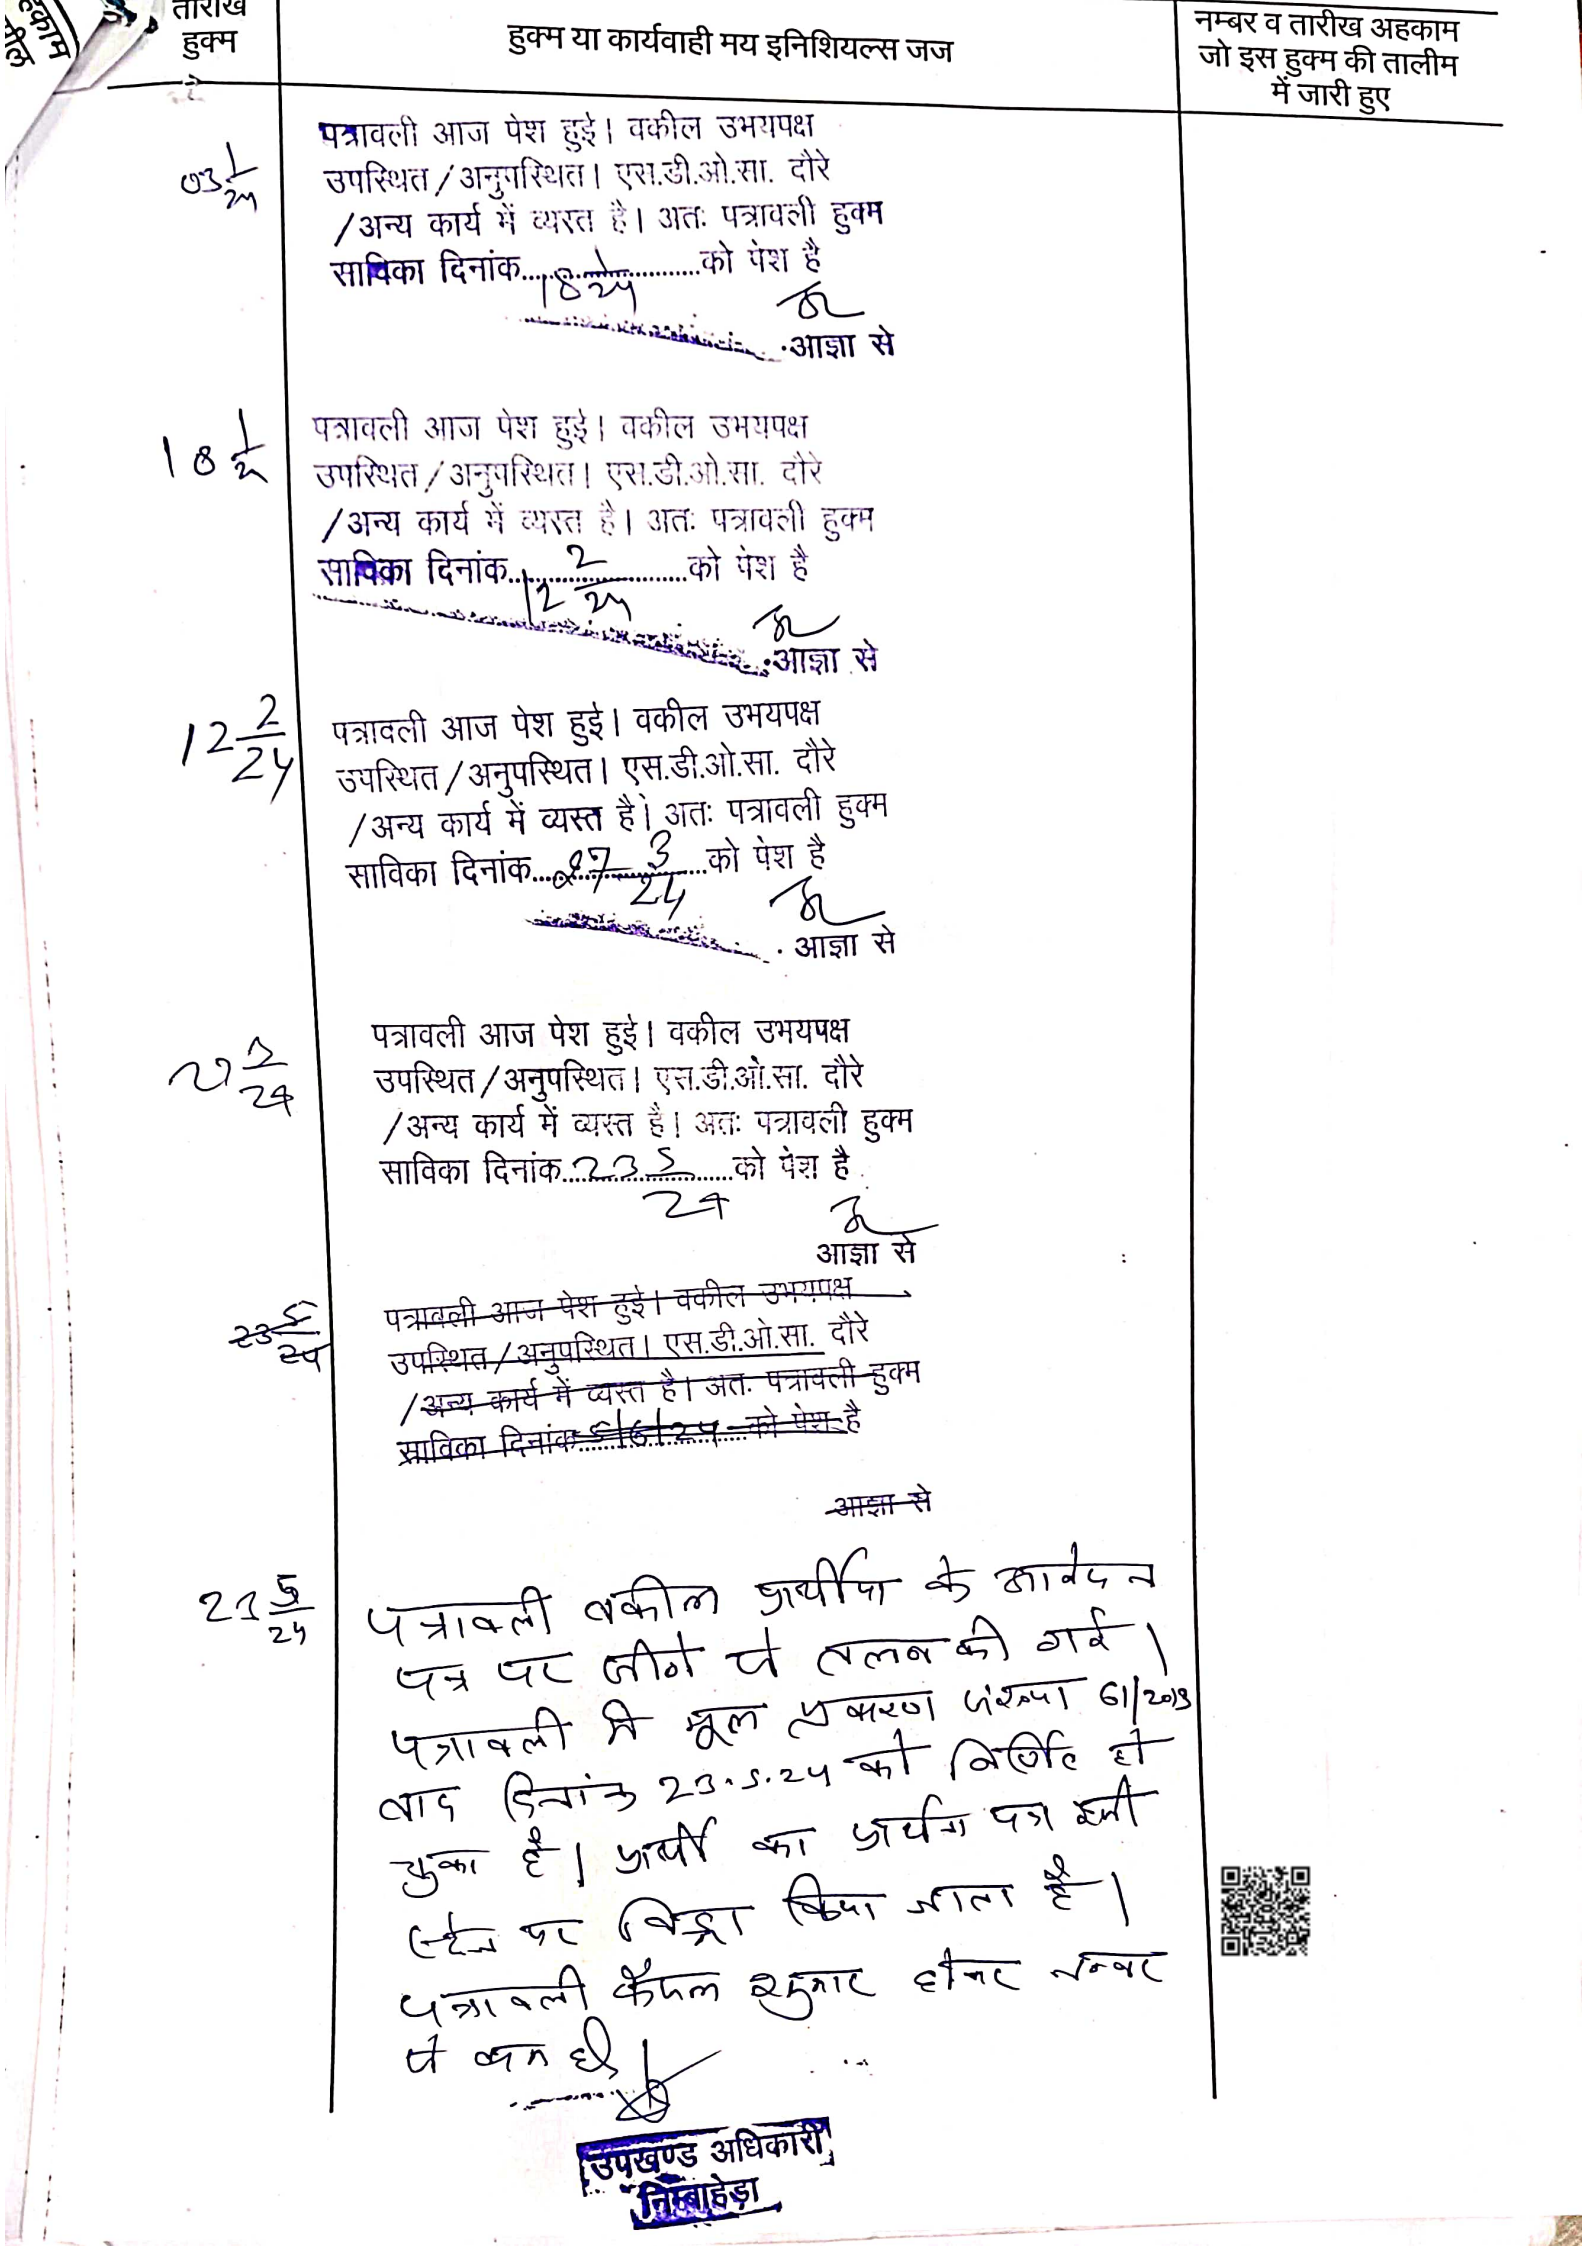 तारीख
हुक्म
हुक्म या कार्यवाही मय इनिशियल्स जज
नम्बर व तारीख अहकाम
जो इस हुक्म की तालीम
में जारी हुए
03 1/24
पत्रावली आज पेश हुई। वकील उभयपक्ष
उपस्थित/अनुपस्थित। एस.डी.ओ.सा. दौरे
/अन्य कार्य में व्यस्त है। अतः पत्रावली हुक्म
साविका दिनांक 18 1/24 को पेश है
आज्ञा से
18 1/24
पत्रावली आज पेश हुई। वकील उभयपक्ष
उपस्थित/अनुपस्थित। एस.डी.ओ.सा. दौरे
/अन्य कार्य में व्यस्त है। अतः पत्रावली हुक्म
साविका दिनांक 12 2/24 को पेश है
आज्ञा से
12 2/24
पत्रावली आज पेश हुई। वकील उभयपक्ष
उपस्थित/अनुपस्थित। एस.डी.ओ.सा. दौरे
/अन्य कार्य में व्यस्त है। अतः पत्रावली हुक्म
साविका दिनांक 27 3/24 को पेश है
आज्ञा से
27 3/24
पत्रावली आज पेश हुई। वकील उभयपक्ष
उपस्थित/अनुपस्थित। एस.डी.ओ.सा. दौरे
/अन्य कार्य में व्यस्त है। अतः पत्रावली हुक्म
साविका दिनांक 23 5/24 को पेश है
आज्ञा से
23 5/24
पत्रावली आज पेश हुई। वकील उभयपक्ष
उपस्थित/अनुपस्थित। एस.डी.ओ.सा. दौरे
/अन्य कार्य में व्यस्त है। अतः पत्रावली हुक्म
साविका दिनांक 5/6/24 को पेश है
आज्ञा से
23 5/24
पत्रावली वकील प्रार्थीया के आवेदन
पत्र पर जीगे से तलब की गई।
पत्रावली में मूल प्रकरण संख्या 61/2019
वाद दिनांक 23.5.24 को निर्णित हो
चुका है। प्रार्थी का प्रार्थना पत्र इसी
स्टेज पर विड्रा किया जाता है।
पत्रावली फैसल शुमार होकर नम्बर
से कम हो
उपखण्ड अधिकारी
निम्बाहेड़ा